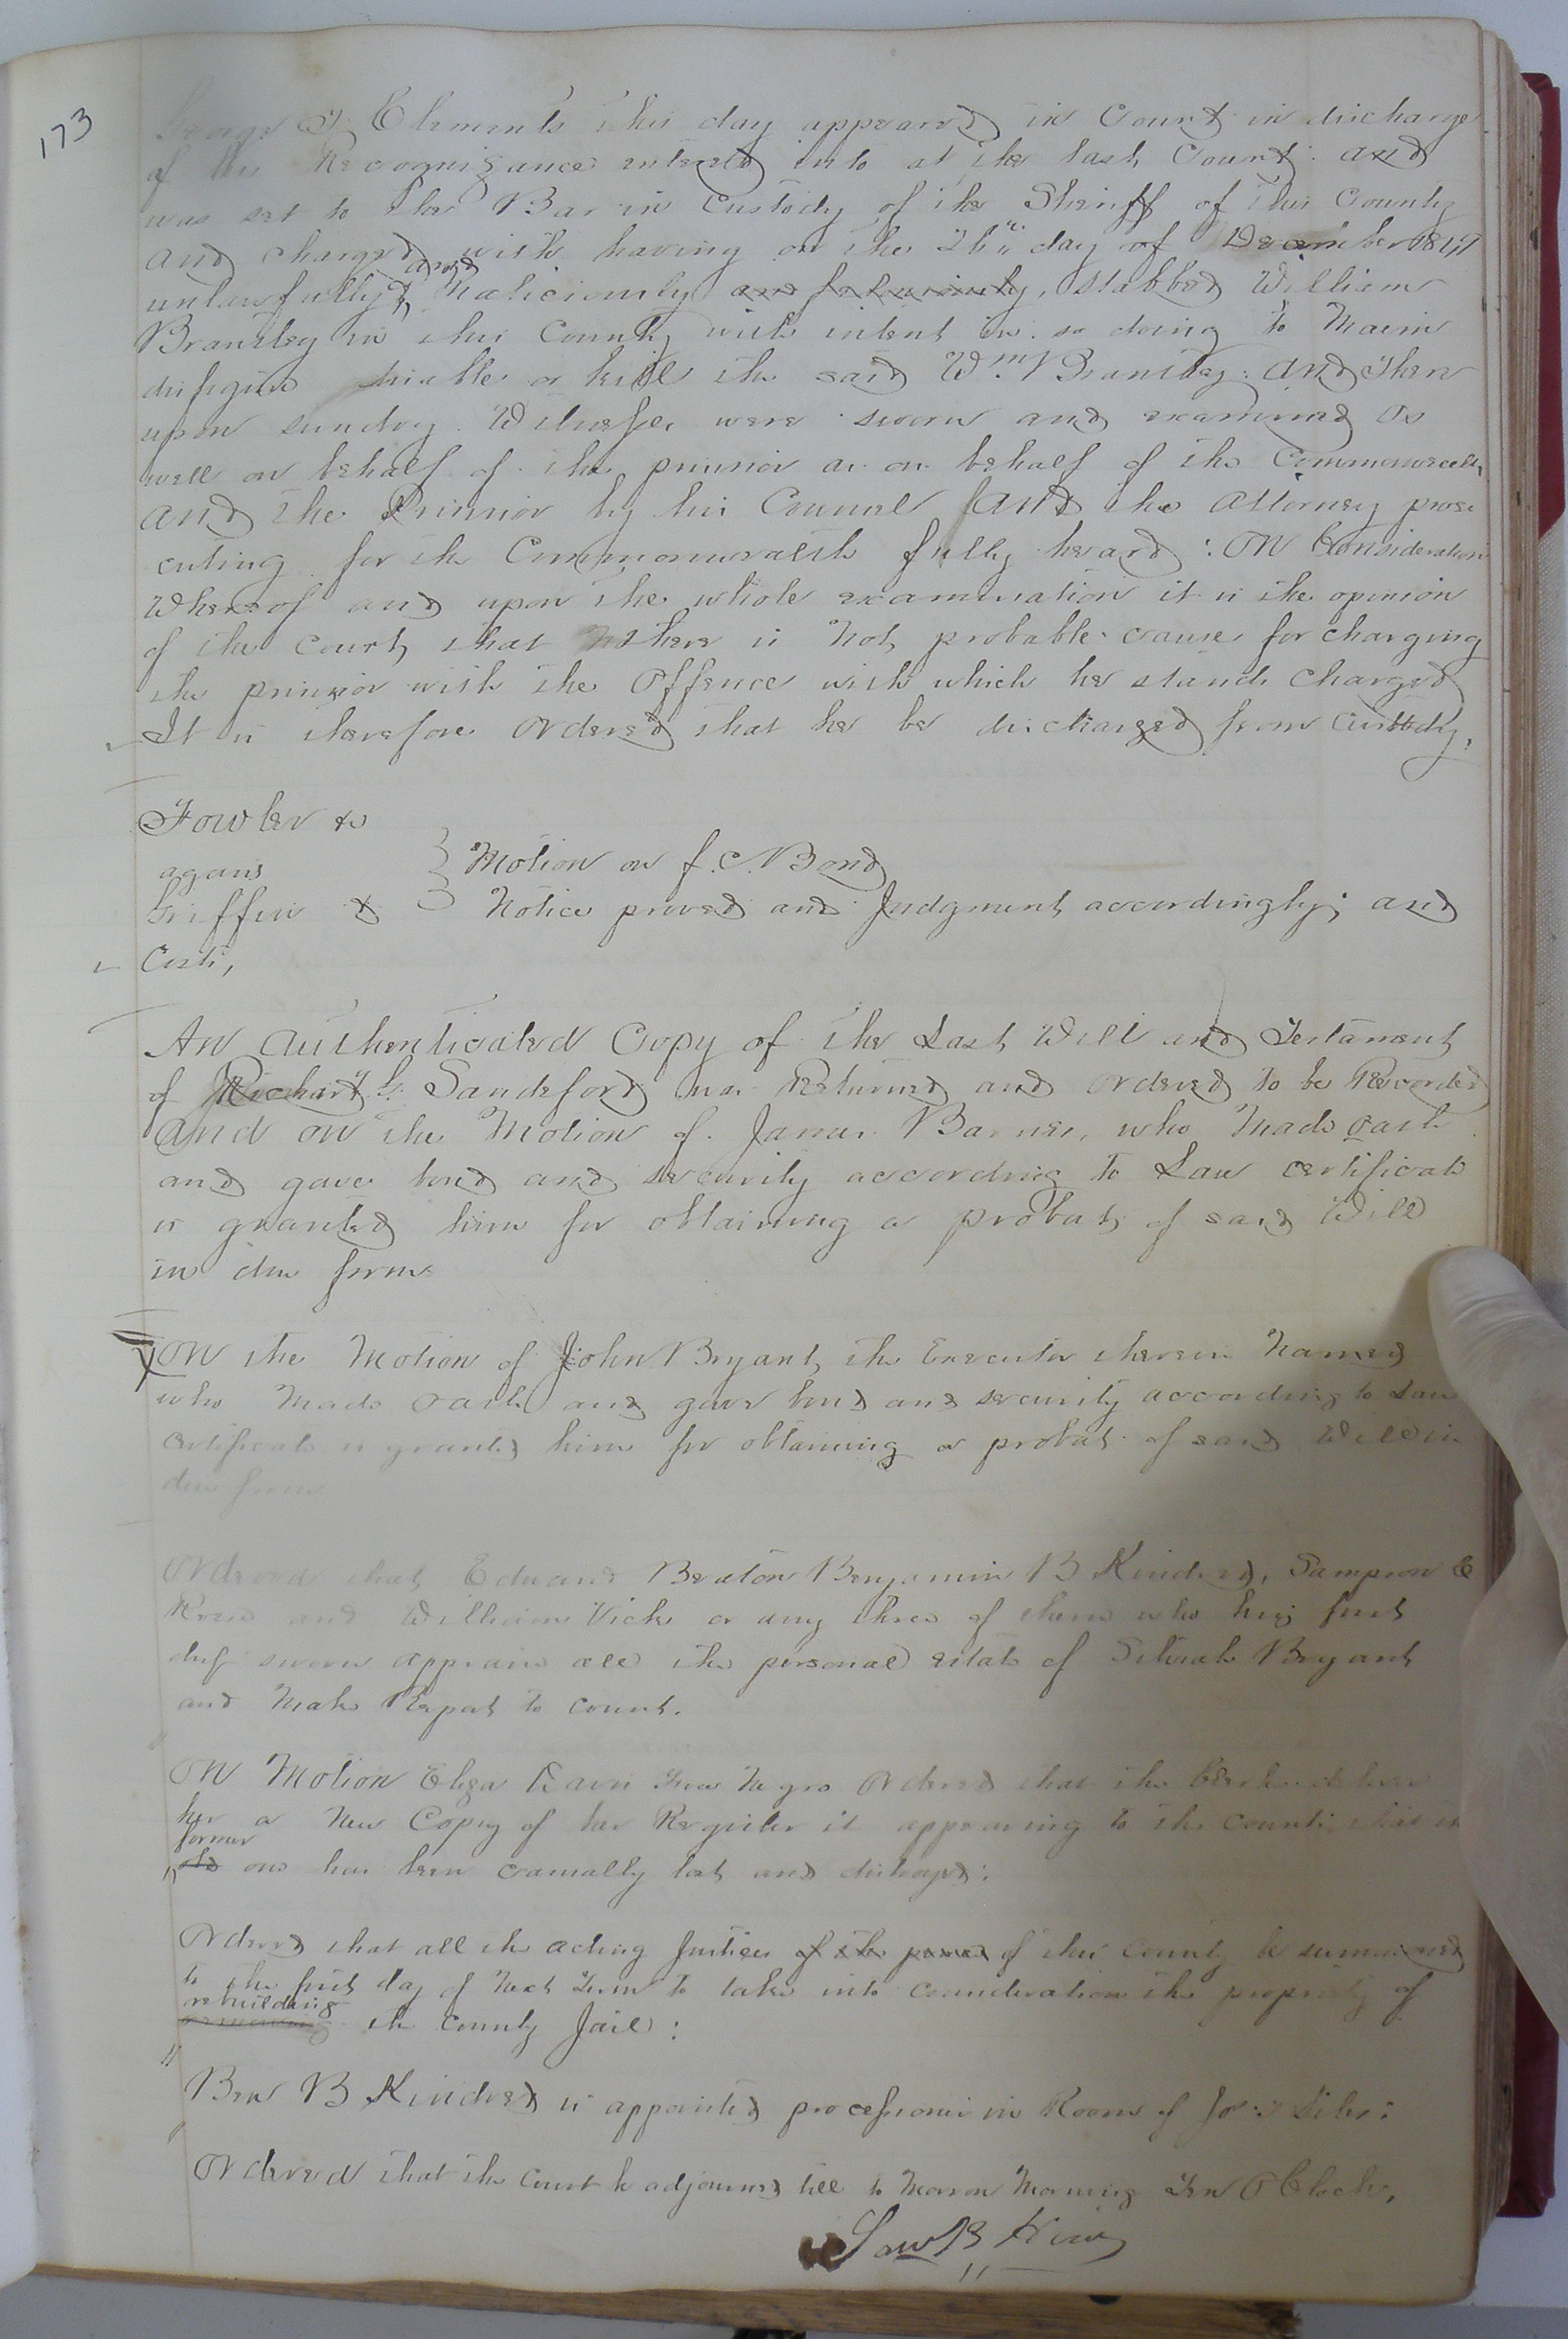 173
George T. Clements this day appeared in Court in discharge
of his Recognizance entered into at the last Court: and
was set to the Bar in Custody of the Sheriff of this County
and charged with having on the 26th day of December 1847
unlawfully and Maliciously and feloniously, stabbed William
Brantley in this County with intent in so doing to Maim
disfigure disable or kill the said Wm Brantley: And there
upon sundry Witnesses were sworn and examined as
well on behalf of the prisoner as on behalf of the Commonwealth
and the Prisoner by his Counsel and the Attorney prose
cuting for the Commonwealth fully heard: On Consideration
Whereof and upon the whole examination it is the opinion
of the Court, that there is Not, probable cause for charging
the prisoner with the Offence with which he stands Charged
It is therefore Ordered that he be discharged from Custody,
Fowler &c
agains
Griffin &
Motion on f. C. Bond
Notice proved and Judgment accordingly; and
Costs,
An Authenticated Copy of the Last Will and Testament
of Richard G. Sandeford was Returned and ordered to be Recorded
And on the Motion of James Barnes, who Made oath
and gave bond and security according to Law certificate
is granted him for obtaining a probat, of said Will
in due form
On the Motion of John Bryant, the Executor therein Named
who Made oath and gave bond and security according to Law
Certificate is granted him for obtaining a probat of said Will in
due form
Ordered that Edward Beaton Benjamin B Kindred, Sampson C
Reese and William Vick or any three of them who being first
duly sworn appraise all the personal estate of Bryant
and Make Report to Court.
On Motion Eliza free Negro Ordered that the Clerk deliver
her a New Copy of her Register it appearing to the Court; that
former
old one has been casually lost and destroyed:
Ordered that all the acting Justices of the peace of this County be summoned
to the first day of Next Term to take into consideration the propriety of
rebuilding
the County Jail:
Ben B Kindred is appointed processioner in Room of
Ordered that the Court be adjourned till to Morrow Morning Ten O Clock,